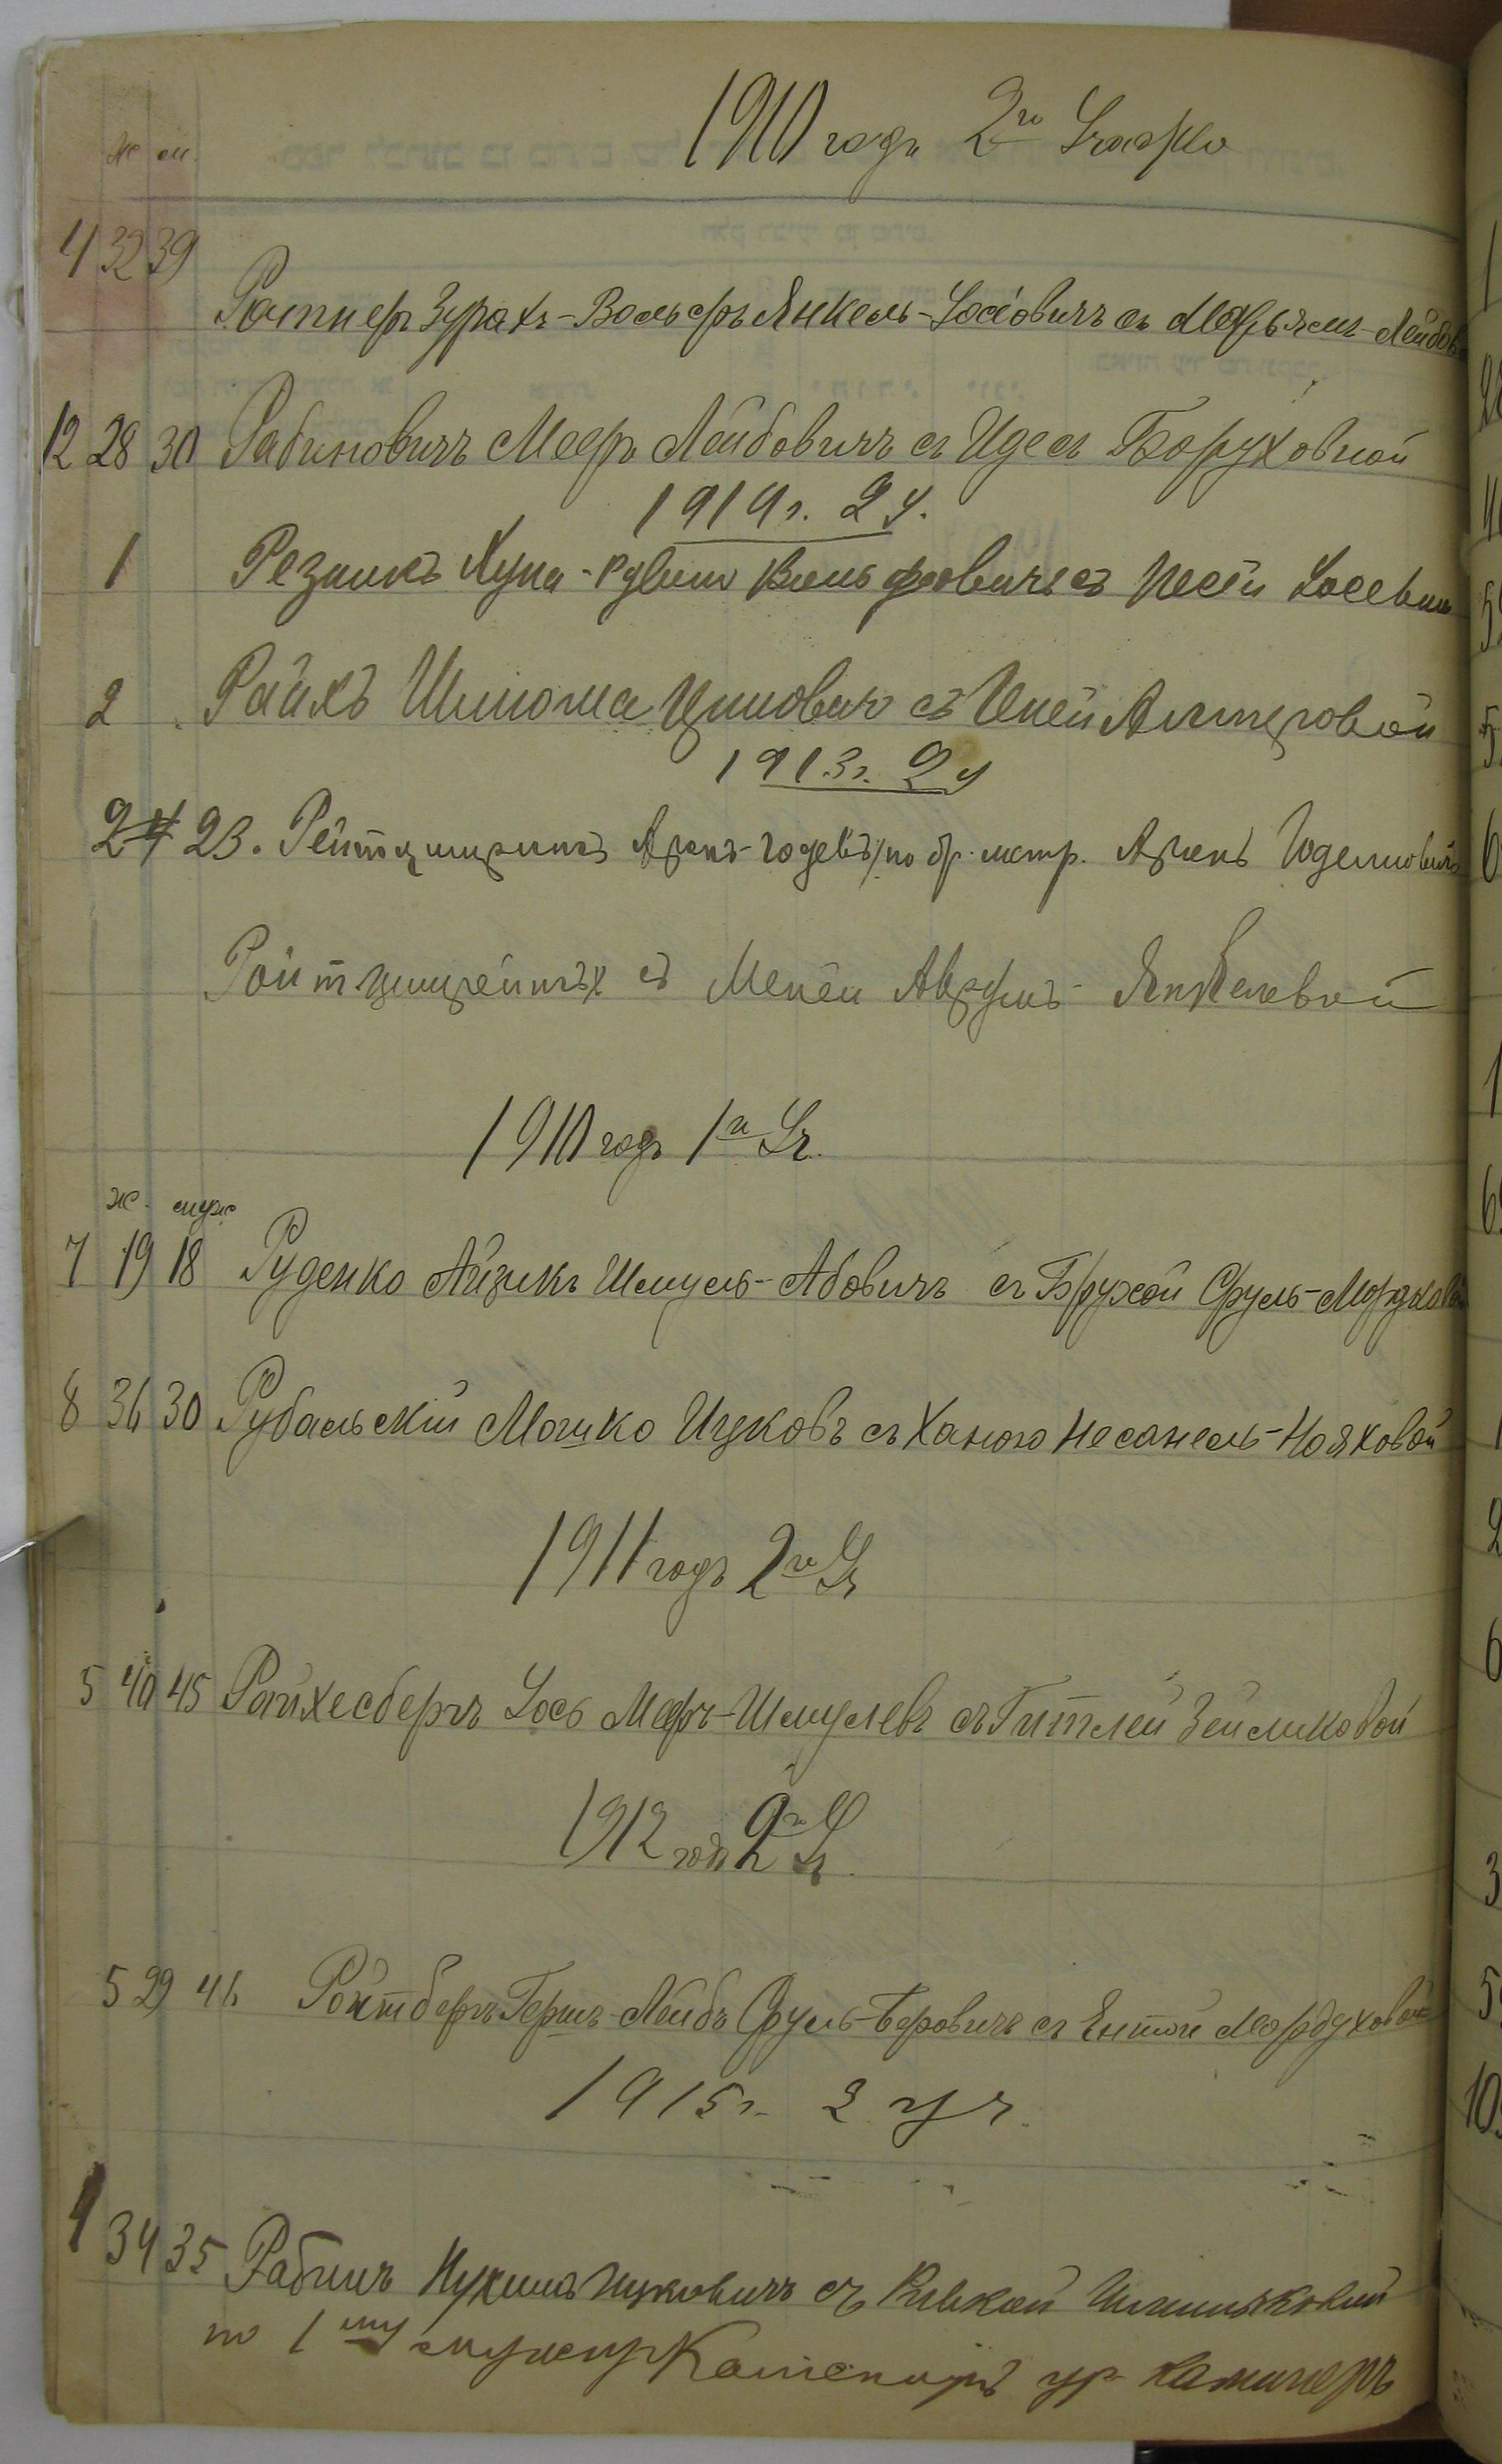 1910 годъ 2го Участка
ж м.
4 32 39
Ратнеръ Зурахъ-Вольфъ Янкель-Іосіовичъ съ Марьямъ-Лейбов
12 28 30 Рабиновичъ Меер Лейбовичъ съ Идесъ Боруховной
1914 г. 2 у.
1 Резникъ Вольфовичъ съ Песей Іосевной
2 Райхъ Шлиома съ Альтеровой
1913 г. 2 у
24 23. Аронъ /по бр. метр. Аронъ Юделиовичъ
съ Меней Аврумъ-Янкелевой
1910 годъ 1й Уч.
ж. муж
7 19 18 Руденко Айзикъ Шмуль-Абовичъ съ Брухой Сруль-Мордковой
8 36 30 Рубальскій Мошко Ицковъ съ Ханою Несанель-Нояховой
1911 годъ 2го Уч
5 40 45 Райхесбергъ Іось Меер-Шмулевъ съ Гитлей Зейликовой
1912 годъ 2го Уч.
5 29 41 Ройтбергъ Гершъ-Лейбъ Сруль-Беровичъ съ Ентой Мордуховой
1915 г. 2 уч.
1 34 35 Рабинъ Нухимъ Ицковичъ съ Ривкой
по 1му мужу ур. Кашперъ